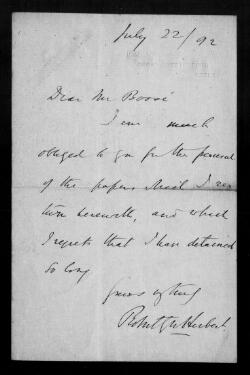 July 22/92
Dear Mr Boosé
I am much
obliged to you for the perusal
of the papers which I re
turn herewith, and which
I regret that I have detained
so long
yours vy truly
Robert G W Herbert